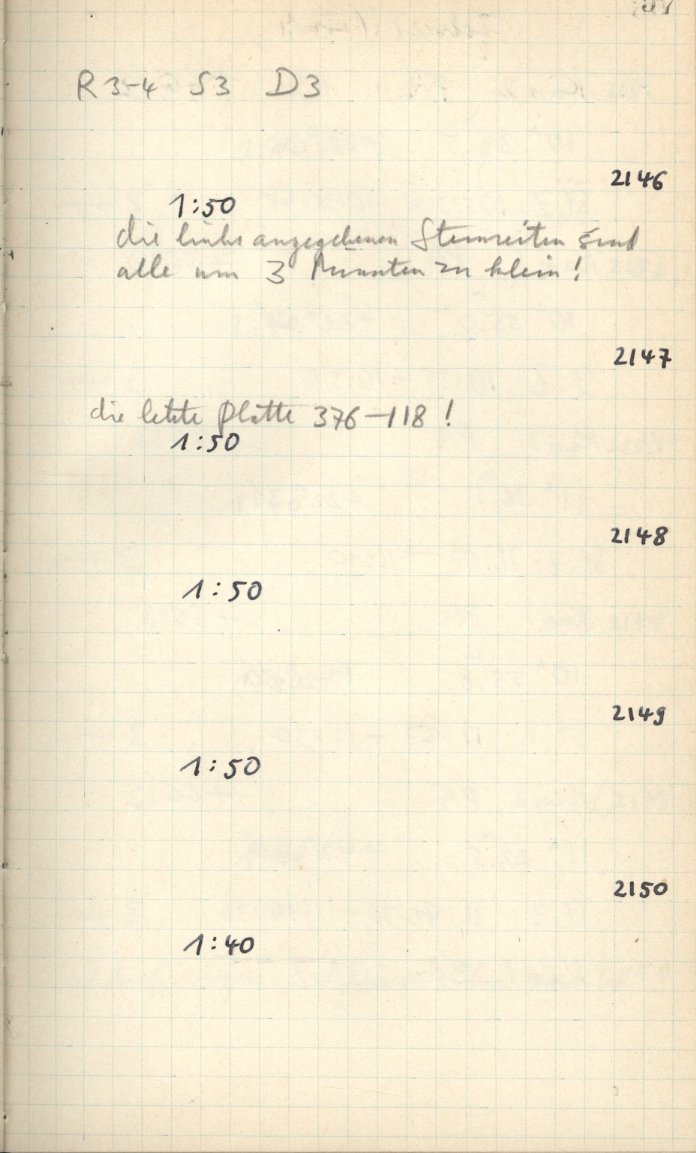 R 3-4 S3 D3
2146
1:50
die links angegebenen Sternzeiten sind
alle um 3 Minuten zu klein!
2147
die letzte Platte 376-118!
1:50
2148
1:50
2149
1:50
2150
1:40